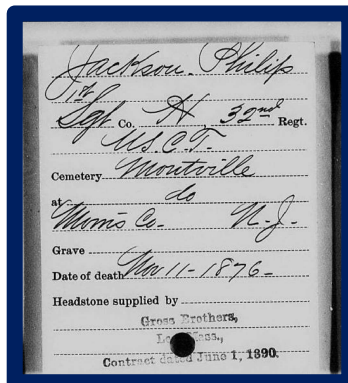 Jackson. Philip
1st
Sgt Co. H, 32nd Regt.
U.S.C.T.
Cemetery Montville
at do
Morris Co. N.J.
Grave
Date of death Nov 11-1876-
Headstone supplied by
Gross Brothers,
Mass.,
Contract dated June 1, 1890.